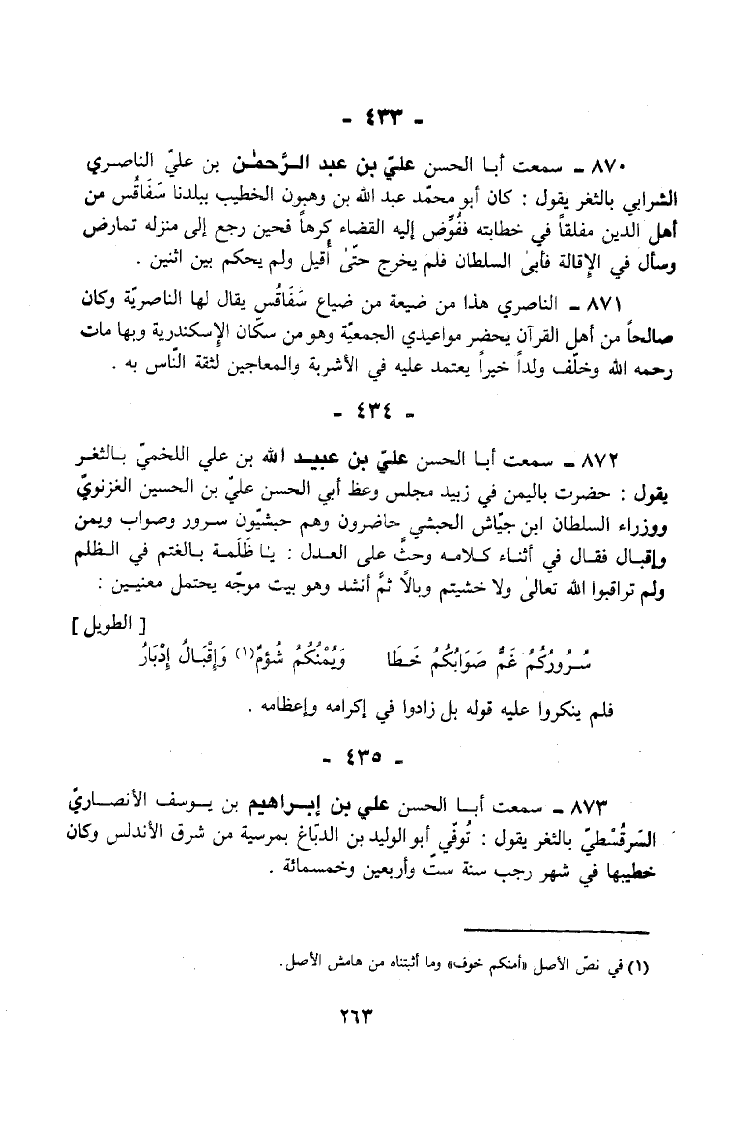 - ٤٣٣ -
٨٧٠ - سمعت أبا الحسن عليّ بن عبد الرَّحمٰن بن عليّ الناصري
الشرابي بالثغر يقول : كان أبو محمّد عبد الله بن وهبون الخطيب ببلدنا سَفَاقُس من
أهل الدين مفلقاً في خطابته ففُوِّض إليه القضاء كرهاً فحين رجع إلى منزله تمارض
وسأل في الإقالة فأبىٰ السلطان فلم يخرج حتّىٰ أُقيل ولم يحكم بين اثنين .
٨٧١ - الناصري هذا من ضيعة من ضياع سَفَاقُس يقال لها الناصريّة وكان
صالحاً من أهل القرآن يحضر مواعيدي الجمعيّة وهو من سكّان الإسكندرية وبها مات
رحمه الله وخلّف ولداً خيراً يعتمد عليه في الأشربة والمعاجين لثقة النّاس به .
- ٤٣٤ -
٨٧٢ - سمعت أبا الحسن عليّ بن عبيد الله بن علي اللخميّ بالثغر
يقول : حضرت باليمن في زبيد مجلس وعظ أبي الحسن عليّ بن الحسين الغزنويّ
ووزراء السلطان ابن جيّاش الحبشي حاضرون وهم حبشيّون سرور وصواب ويمن
وإقبال فقال في أثناء كلامه وحثَّ على العدل : يا ظَلَمة بالغتم في الظلم
ولم تراقبوا الله تعالىٰ ولا خشيتم وبالًا ثمَّ أنشد وهو بيت موجّه يحتمل معنيين :
[ الطويل ]
سُرُورُكُمُ غَمٌّ صَوَابُكُمُ خَطَا وَيُمْنُكُمُ شُؤمٌ(١) وَإِقْبَالُ إِدْبَارُ
فلم ينكروا عليه قوله بل زادوا في إكرامه وإعظامه .
- ٤٣٥ -
٨٧٣ - سمعت أبا الحسن علي بن إبراهيم بن يوسف الأنصاريّ
السَرقُسْطيّ بالثغر يقول : تُوفّي أبو الوليد بن الدبّاغ بمرسية من شرق الأندلس وكان
خطيبها في شهر رجب سنة ستّ وأربعين وخمسمائة .
(١) في نصّ الأصل «أمنكم خوف» وما أثبتناه من هامش الأصل.
٢٦٣